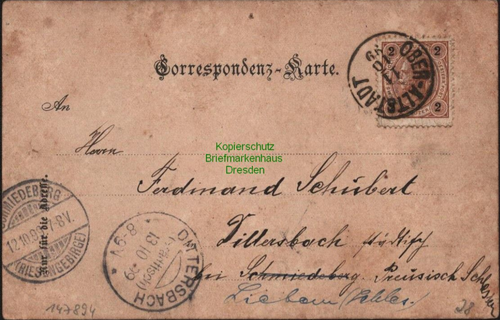 OBER-ALTSTADT
2 2
2 2
Correspondenz-Karte.
An
Kopierschutz
Briefmarkenhaus
Dresden
Herrn
Ferdinand Schubert
Dittersbach städtisch
bei Schmiedeberg Preusisch
Liebau
SCHMIEDEBERG
12.10.99
(RIESENGEBIRGE)
Nur für die Adresse.
DITTERSBACH
städtisch
13.10.99
8-9V
147894
28